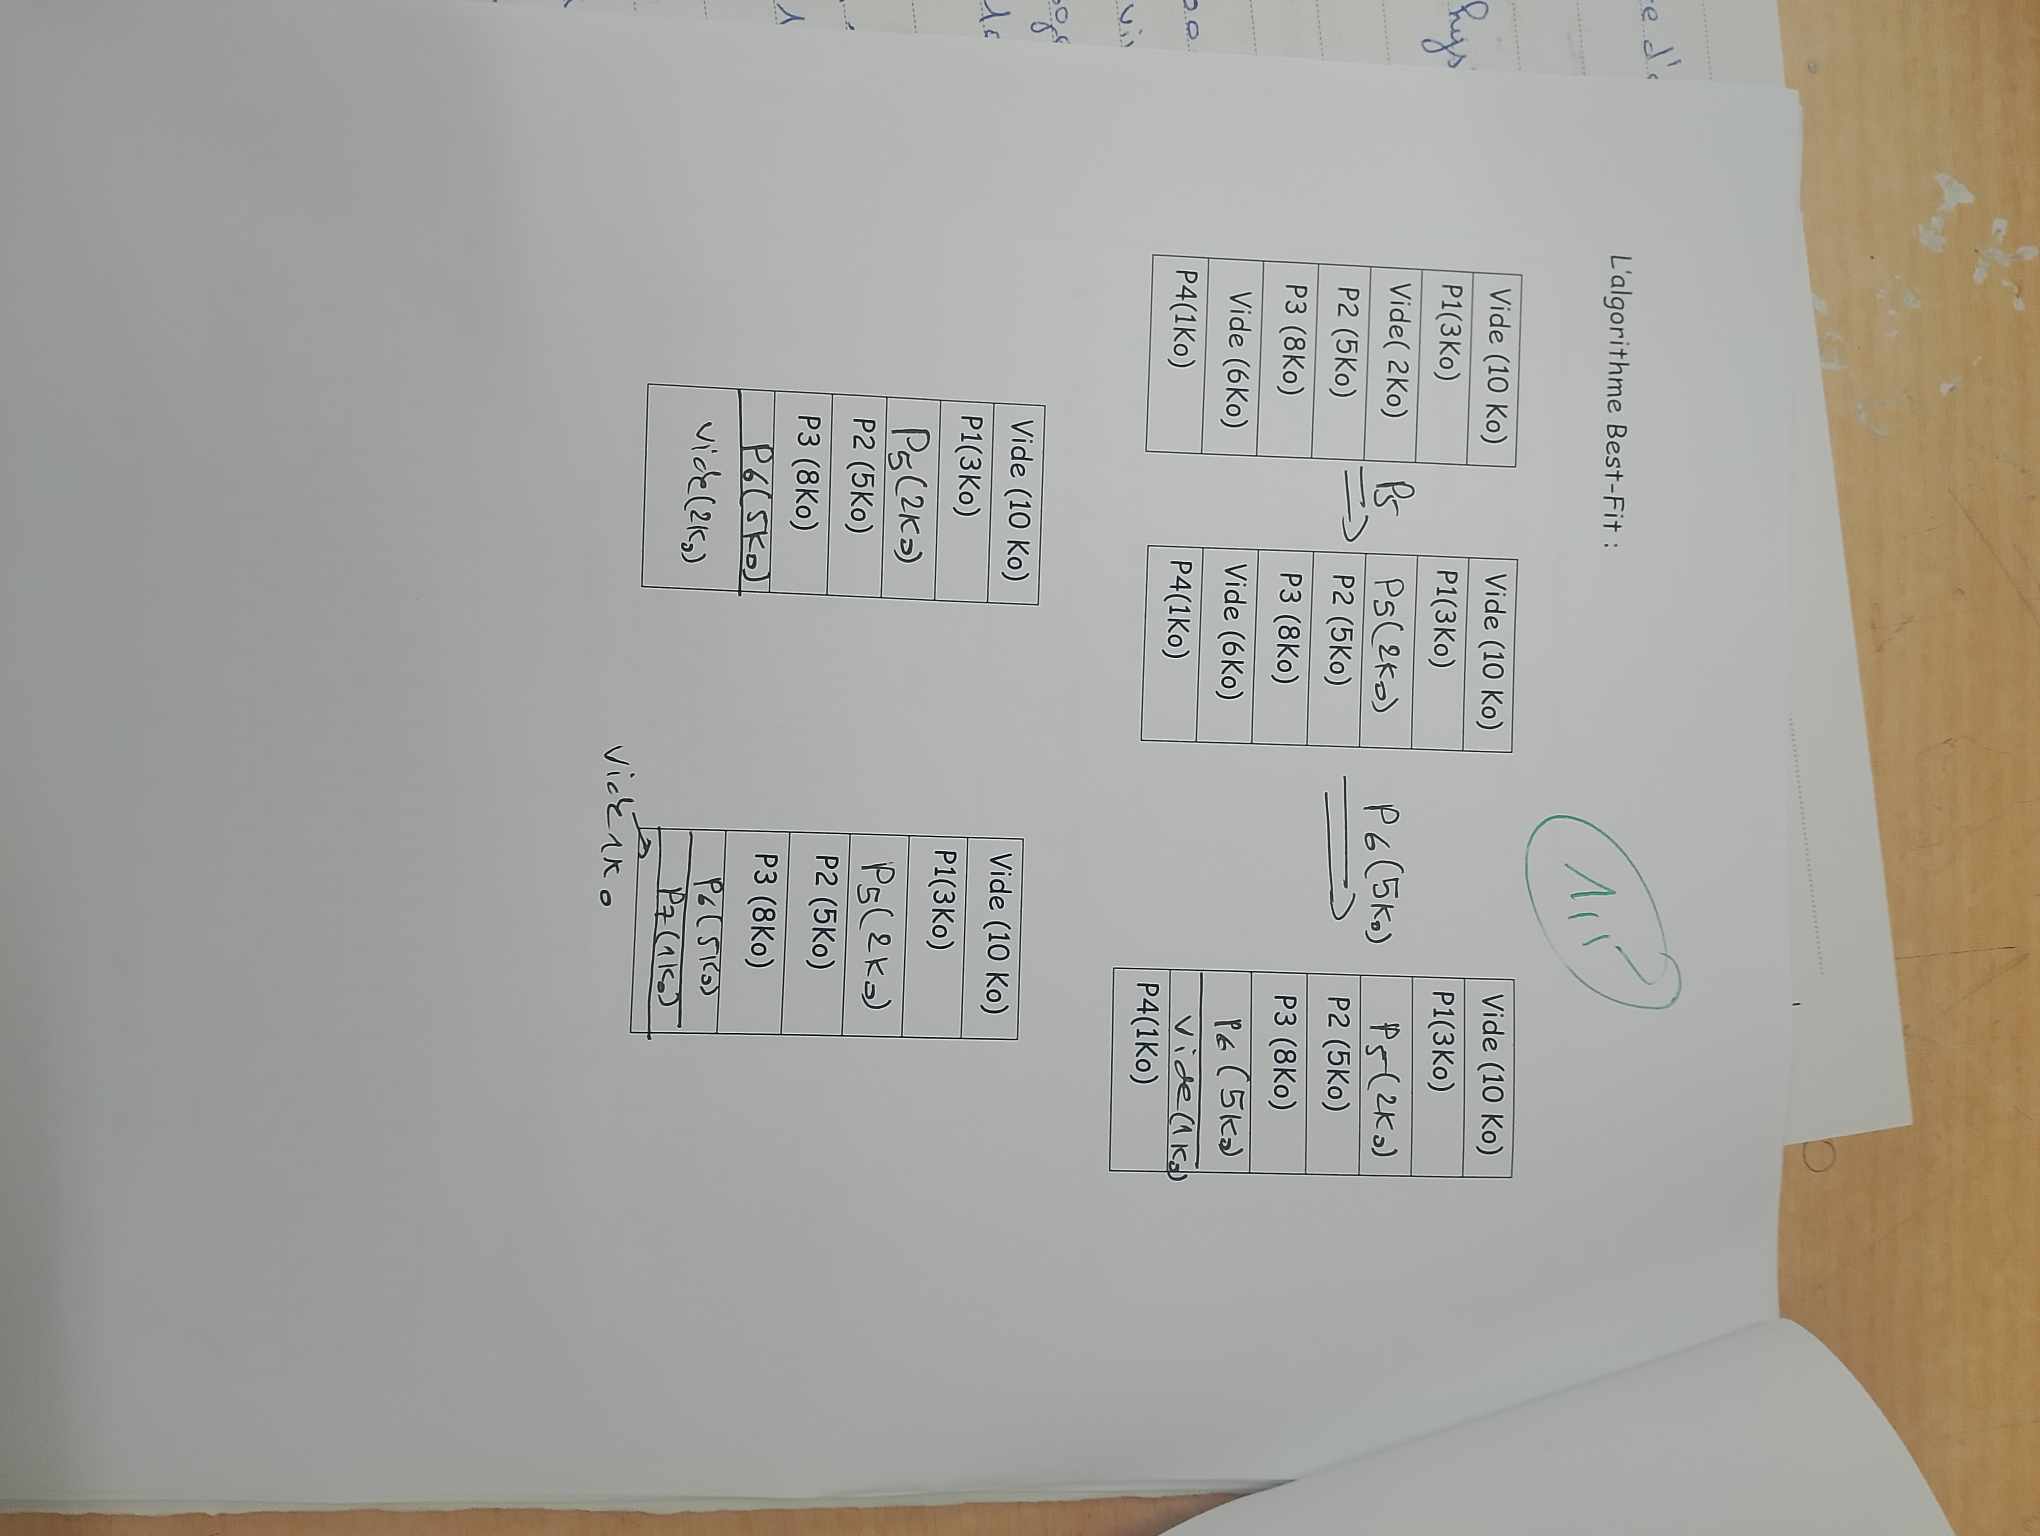 L'algorithme Best-Fit :
1,5
Vide (10 Ko)
P1(3Ko)
Vide( 2Ko)
P2 (5Ko)
P3 (8Ko)
Vide (6Ko)
P4(1Ko)
P5
Vide (10 Ko)
P1(3Ko)
P5(2Ko)
P2 (5Ko)
P3 (8Ko)
Vide (6Ko)
P4(1Ko)
P6(5Ko)
Vide (10 Ko)
P1(3Ko)
P5(2Ko)
P2 (5Ko)
P3 (8Ko)
P6 (5Ko)
Vide(1Ko)
P4(1Ko)
Vide (10 Ko)
P1(3Ko)
P5(2Ko)
P2 (5Ko)
P3 (8Ko)
P6(5Ko)
Vide(2Ko)
Vide (10 Ko)
P1(3Ko)
P5(2Ko)
P2 (5Ko)
P3 (8Ko)
P6(5Ko)
P7(1Ko)
Vide 1Ko